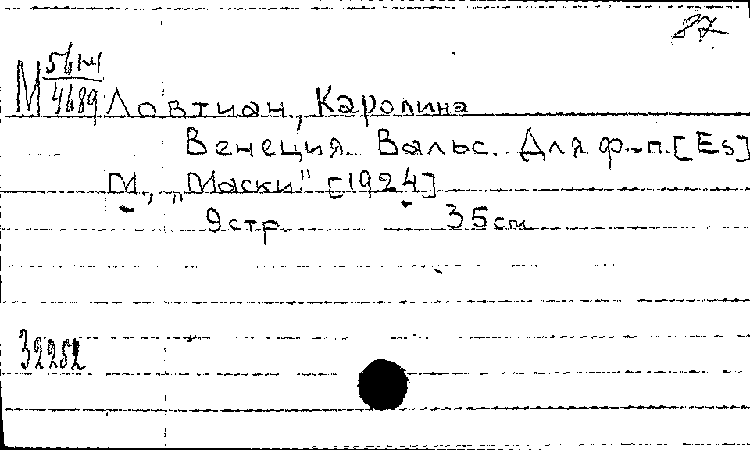 87
М 4689 Ловтиан, Каролина
Венеция. Вальс. Для ф.-п. [Es]
М., „Маски" [1924]
9 стр. 35 см
32252